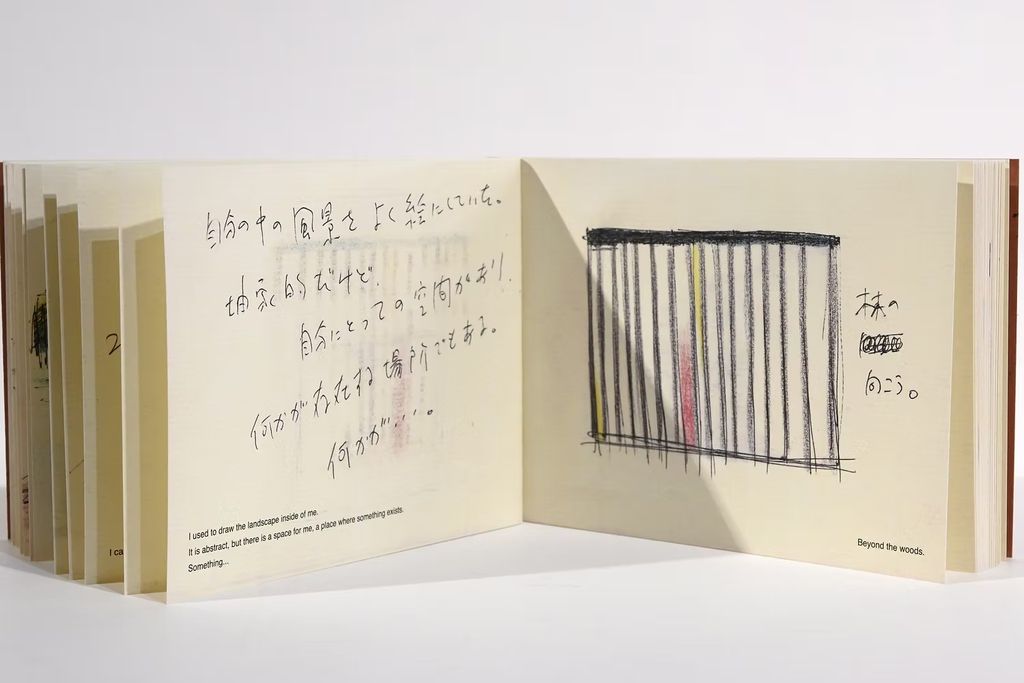 2
I ca
自分の中の風景をよく絵にしていた。
抽象的だけど、
自分にとっての空間があり、
何かが存在する場所でもある。
何かが・・・。
I used to draw the landscape inside of me.
It is abstract, but there is a space for me, a place where something exists.
Something...
林の
向こう。
Beyond the woods.